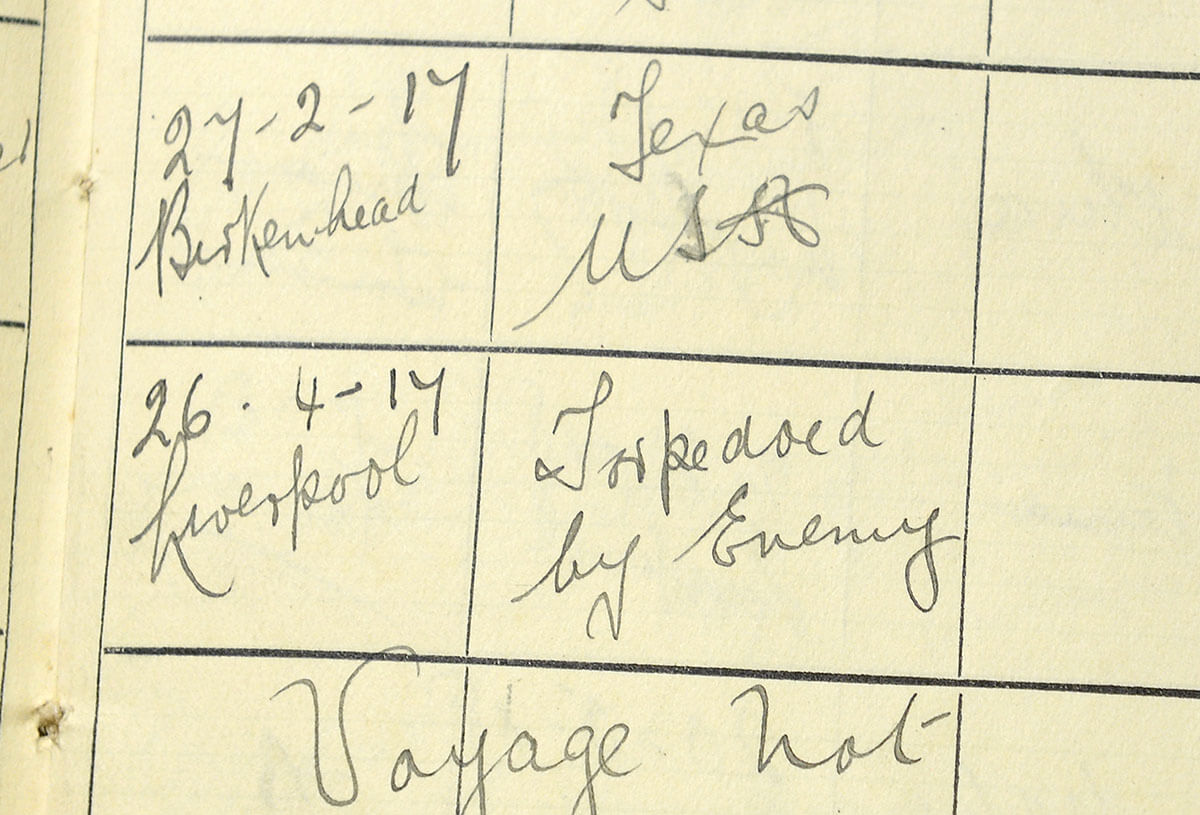 27-2-17
Birkenhead
Texas
USA
26. 4-17
Liverpool
Torpedoed
by Enemy
Voyage not